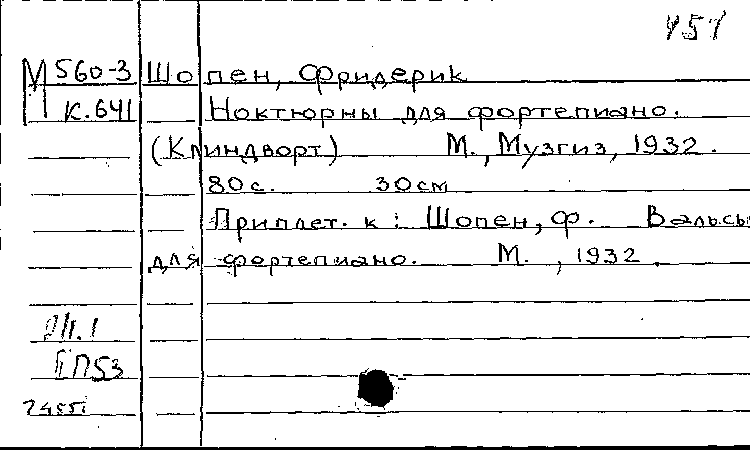 М 560-3 Шопен, Фридерик
К.641 Ноктюрны для фортепиано.
(Клиндворт) М., Музгиз, 1932.
80с. 30см
Приплет. к: Шопен, Ф. Вальсы
для фортепиано. М. , 1932.